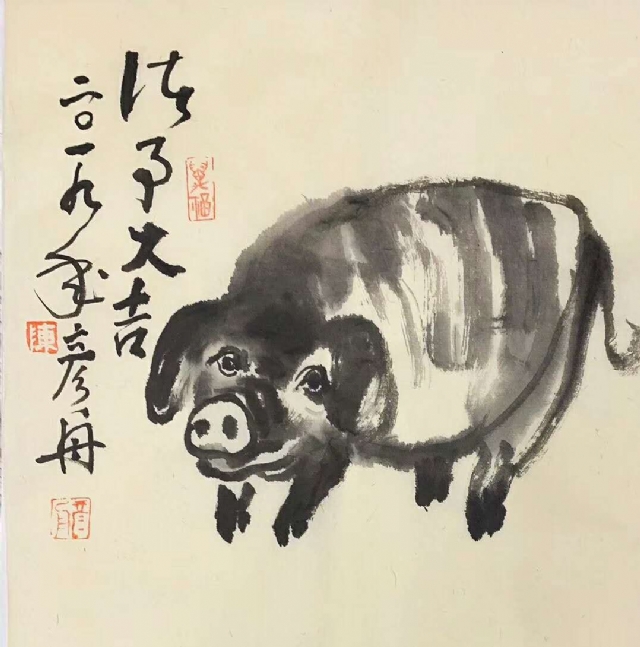 诸事大吉
二〇一九年彦舟
陳